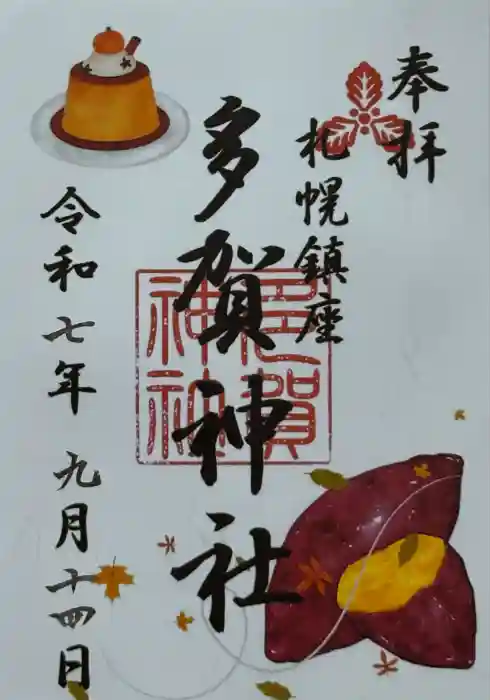 奉拝
札幌鎮座
多賀神社
多賀神社
令和七年 九月十四日